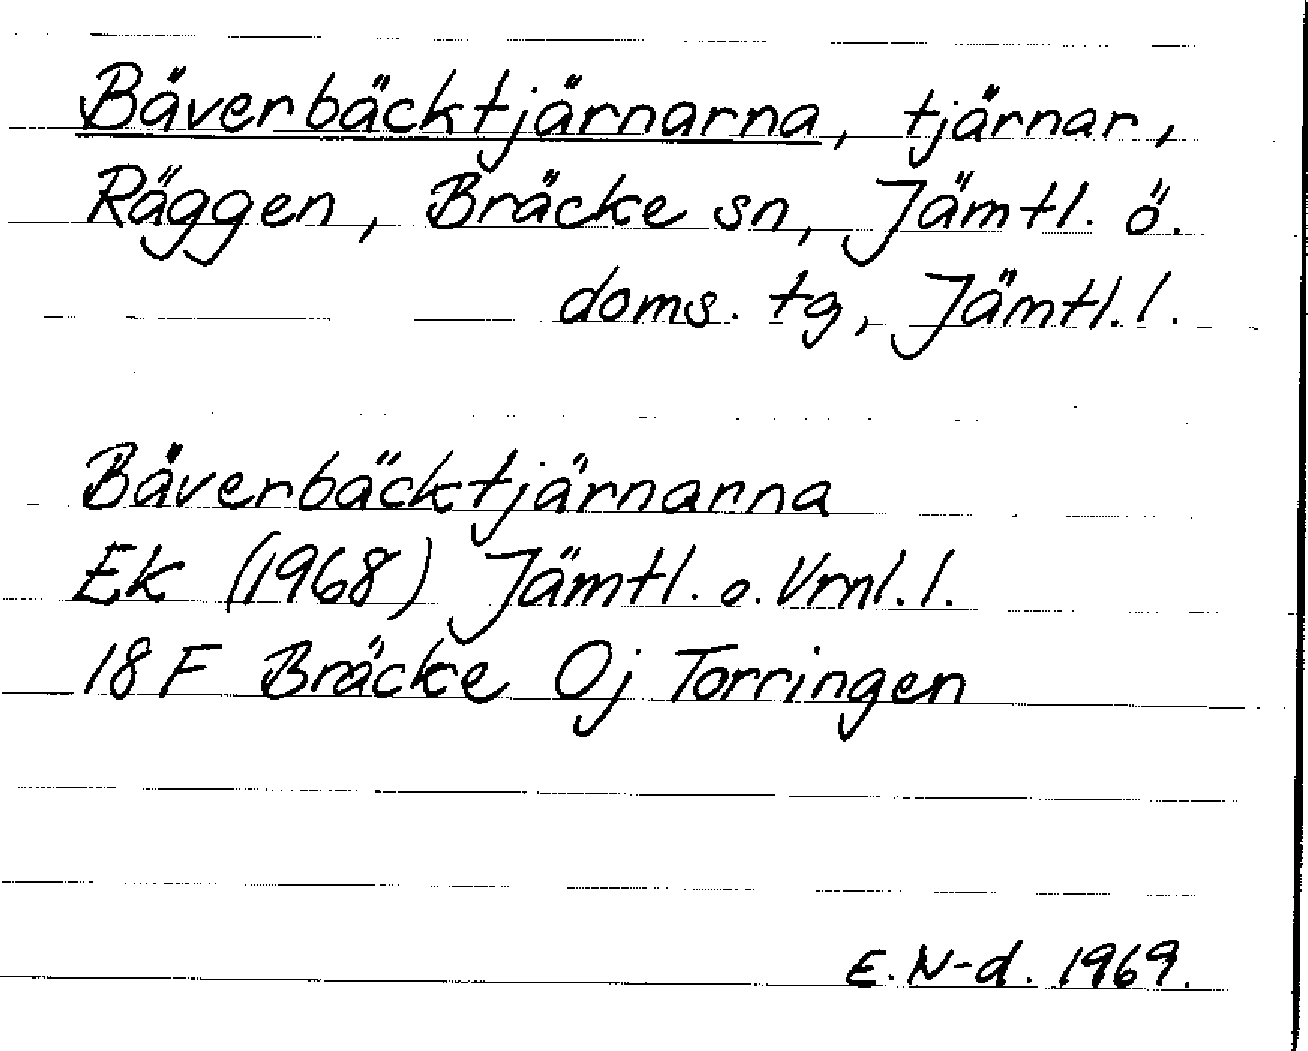 Bäverbäcktjärnarna, tjärnar,
Räggen, Bräcke sn, Jämtl. ö.
doms. tg, Jämtl. l.
Bäverbäcktjärnarna
Ek (1968) Jämtl. o. Vrnl. l.
18 F Bräcke Oj Torringen
E. N-d. 1969.